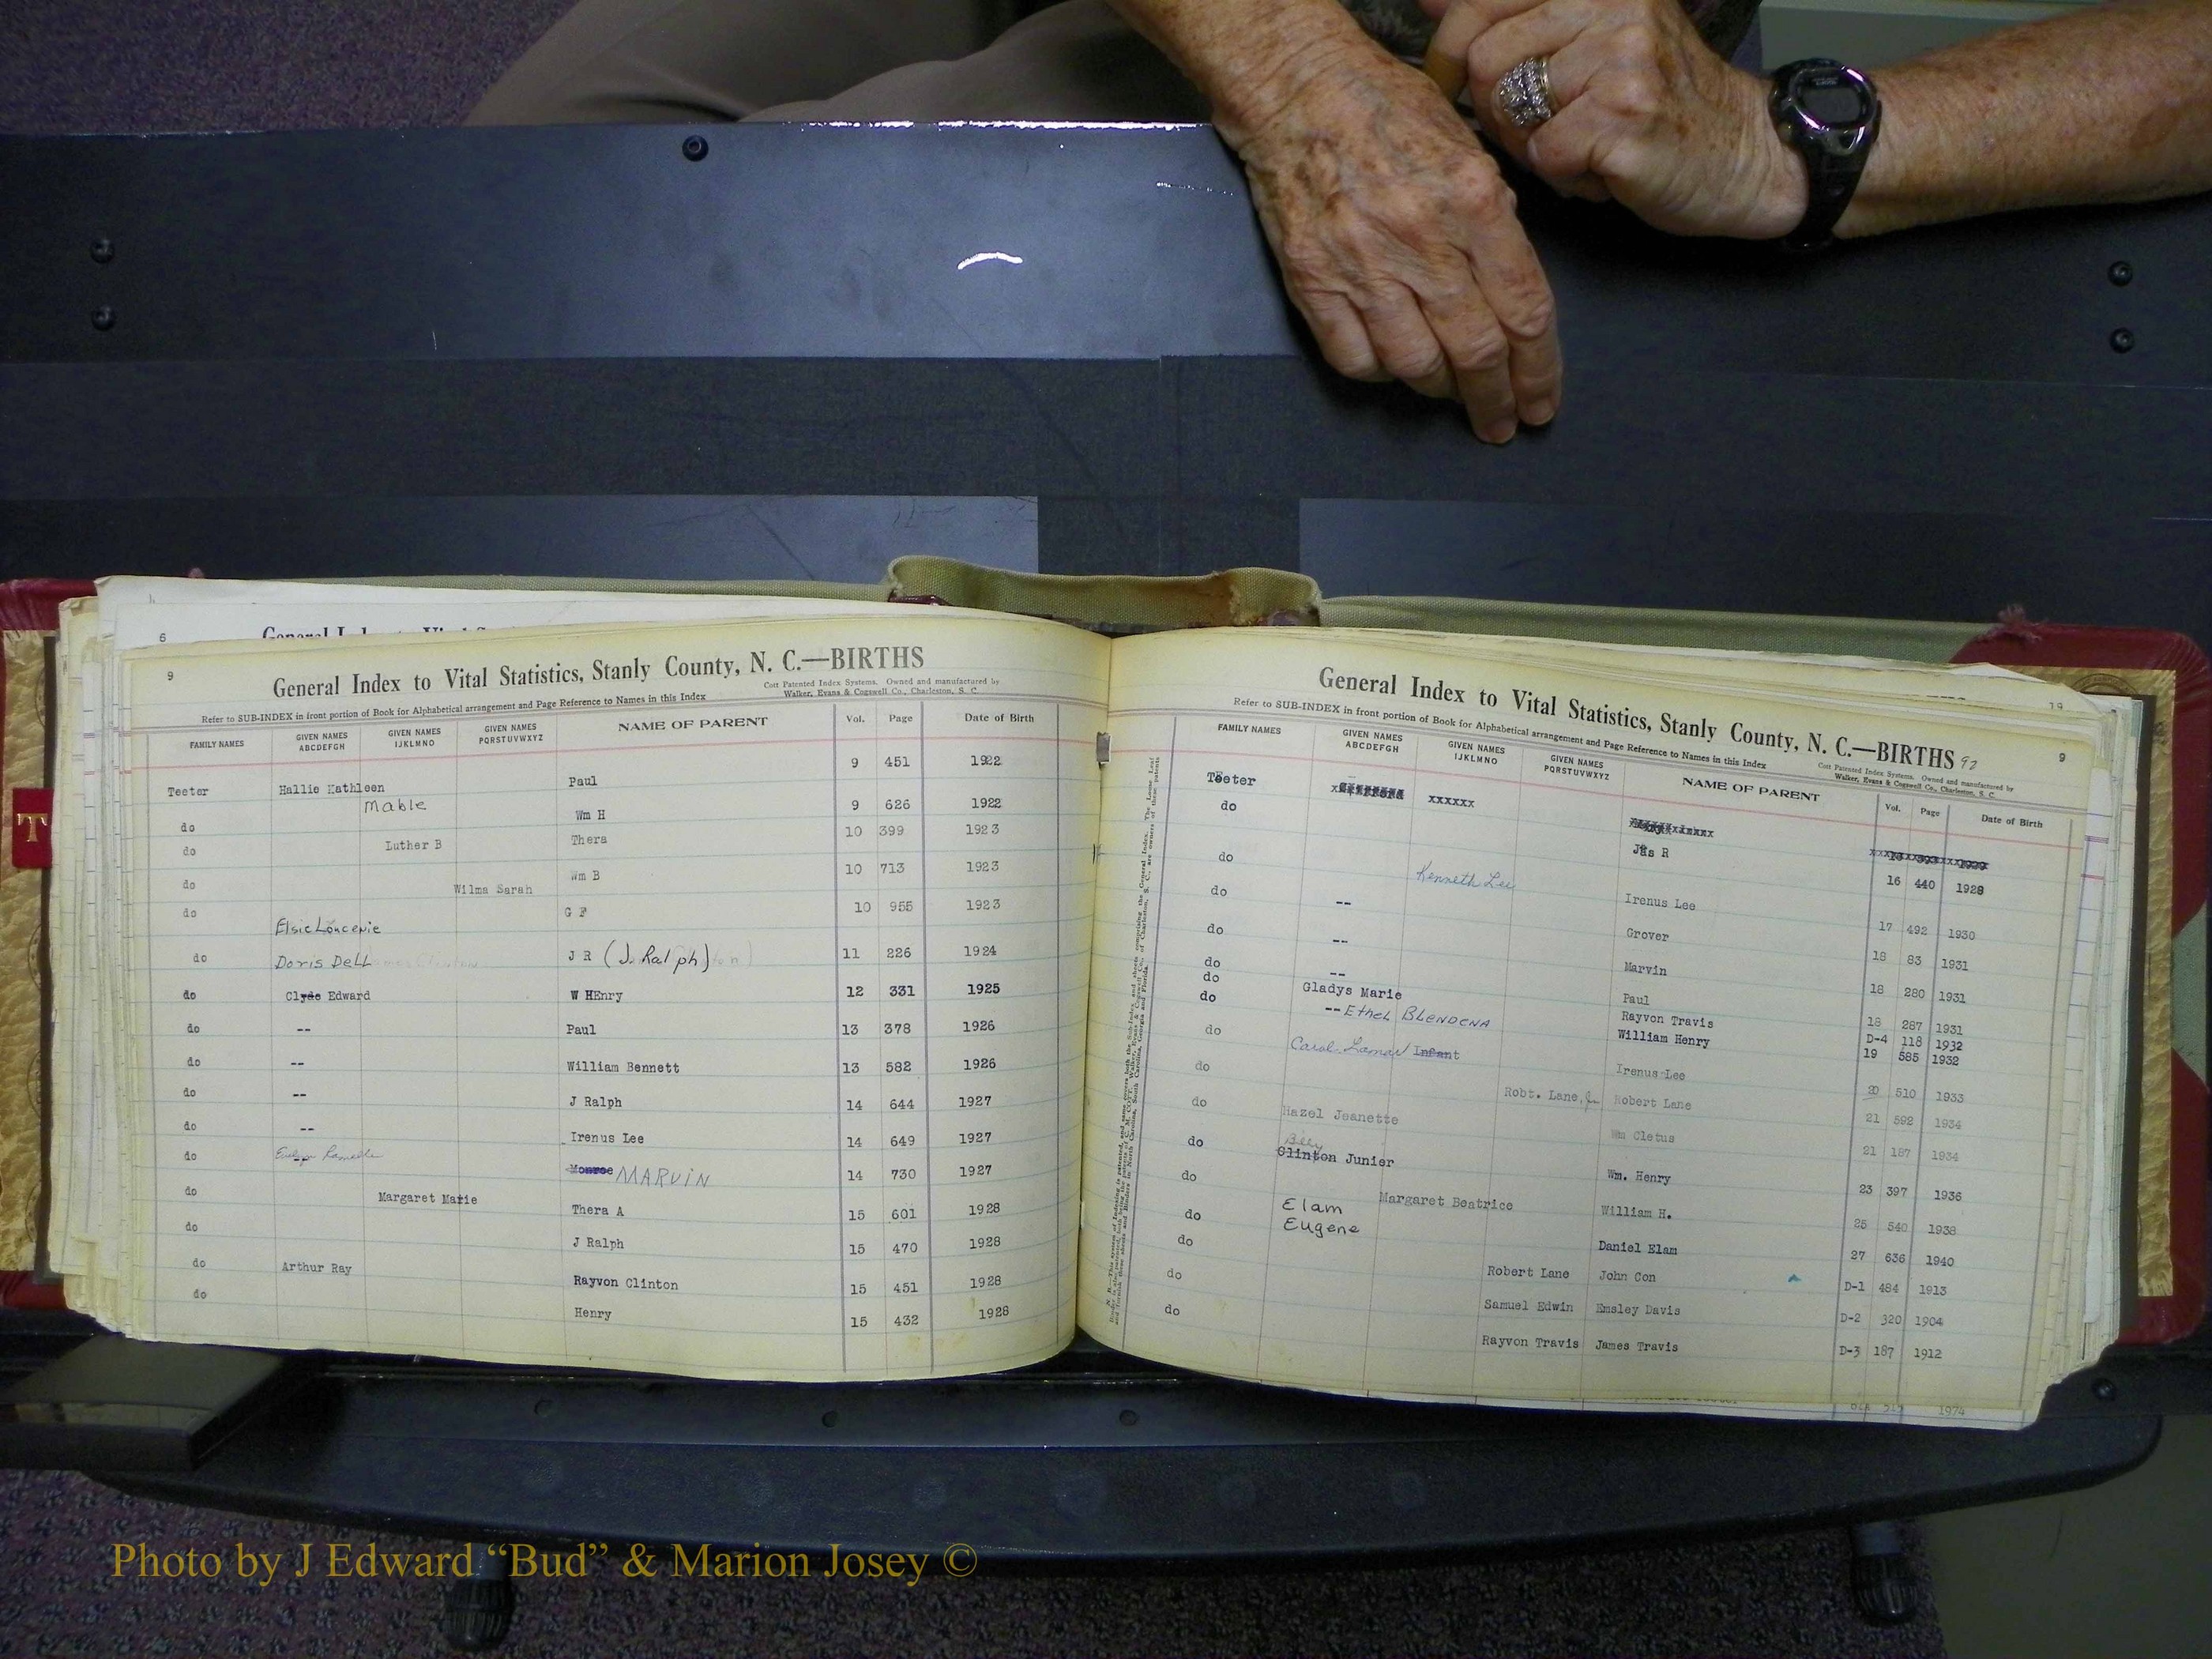 6
9
General Index to Vital Statistics, Stanly County, N. C.—BIRTHS
Cott Patented Index Systems. Owned and manufactured by
Walker, Evans & Cogswell Co., Charleston, S. C.
Refer to SUB-INDEX in front portion of Book for Alphabetical arrangement and Page Reference to Names in this Index
FAMILY NAMES GIVEN NAMES ABCDEFGH GIVEN NAMES IJKLMNO GIVEN NAMES PQRSTUVWXYZ NAME OF PARENT Vol. Page Date of Birth
Teeter Hallie Kathleen Paul 9 451 1922
do Mable Wm H 9 626 1922
do Luther B Thera 10 399 1923
do Wilma Sarah Wm B 10 713 1923
do Elsie Loucenie G F 10 955 1923
do Doris Dell J R (J. Ralph) 11 226 1924
do Clyde Edward W HEnry 12 331 1925
do -- Paul 13 378 1926
do -- William Bennett 13 582 1926
do -- J Ralph 14 644 1927
do -- Irenus Lee 14 649 1927
do Monroe MARVIN 14 730 1927
do Margaret Marie Thera A 15 601 1928
do J Ralph 15 470 1928
do Arthur Ray Rayvon Clinton 15 451 1928
do Henry 15 432 1928
T
19
General Index to Vital Statistics, Stanly County, N. C.—BIRTHS 92
9
Cott Patented Index Systems. Owned and manufactured by
Walker, Evans & Cogswell Co., Charleston, S. C.
Refer to SUB-INDEX in front portion of Book for Alphabetical arrangement and Page Reference to Names in this Index
FAMILY NAMES GIVEN NAMES ABCDEFGH GIVEN NAMES IJKLMNO GIVEN NAMES PQRSTUVWXYZ NAME OF PARENT Vol. Page Date of Birth
Teeter xxxxxx
do Jas R 16 440 1928
do Kenneth Lee Irenus Lee 17 492 1930
do -- Grover 18 83 1931
do -- Marvin 18 280 1931
do -- Paul 18 287 1931
do Gladys Marie Rayvon Travis D-4 118 1932
do --Ethel BLENDENA William Henry 19 585 1932
do Carol Lamar Infant Irenus Lee 20 510 1933
do Robt. Lane, Jr Robert Lane 21 592 1934
do Hazel Jeanette Wm Cletus 21 187 1934
do Billy Clinton Junier Wm. Henry 23 397 1936
do Margaret Beatrice William H. 25 540 1938
do Elam Eugene Daniel Elam 27 636 1940
do Robert Lane John Con D-1 484 1913
do Samuel Edwin Emsley Davis D-2 320 1904
do Rayvon Travis James Travis D-3 187 1912
1974
Photo by J Edward “Bud” & Marion Josey ©